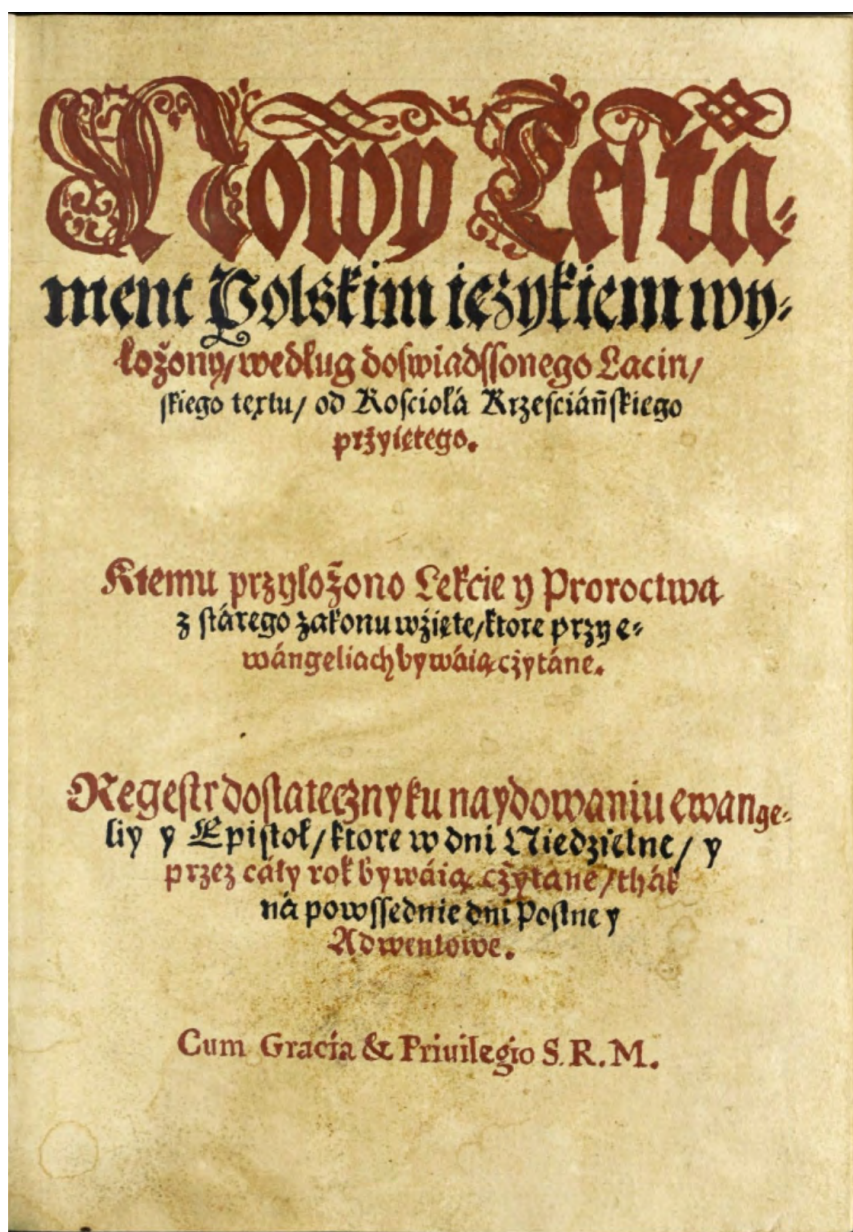 Nowy Testa-
ment Polskim ięzykiem wy-
łożony/ według doświadssonego Lacin/
skiego textu/ od Kosciołá Krzesciáńskiego
przyiętego.
Ktemu przyłożono Lekcie y Proroctwa
z stárego zakonu wzięte/ ktore przy e-
wángeliach bywáią czytáne.
Regestr dostateczny ku naydowaniu ewange-
liy y Epistoł/ ktore w dni Niedzielne/ y
przez cały rok bywáią czytáne/ thák
ná powssednie dni Postne y
Adwentowe.
Cum Gracia & Priuilegio S. R. M.